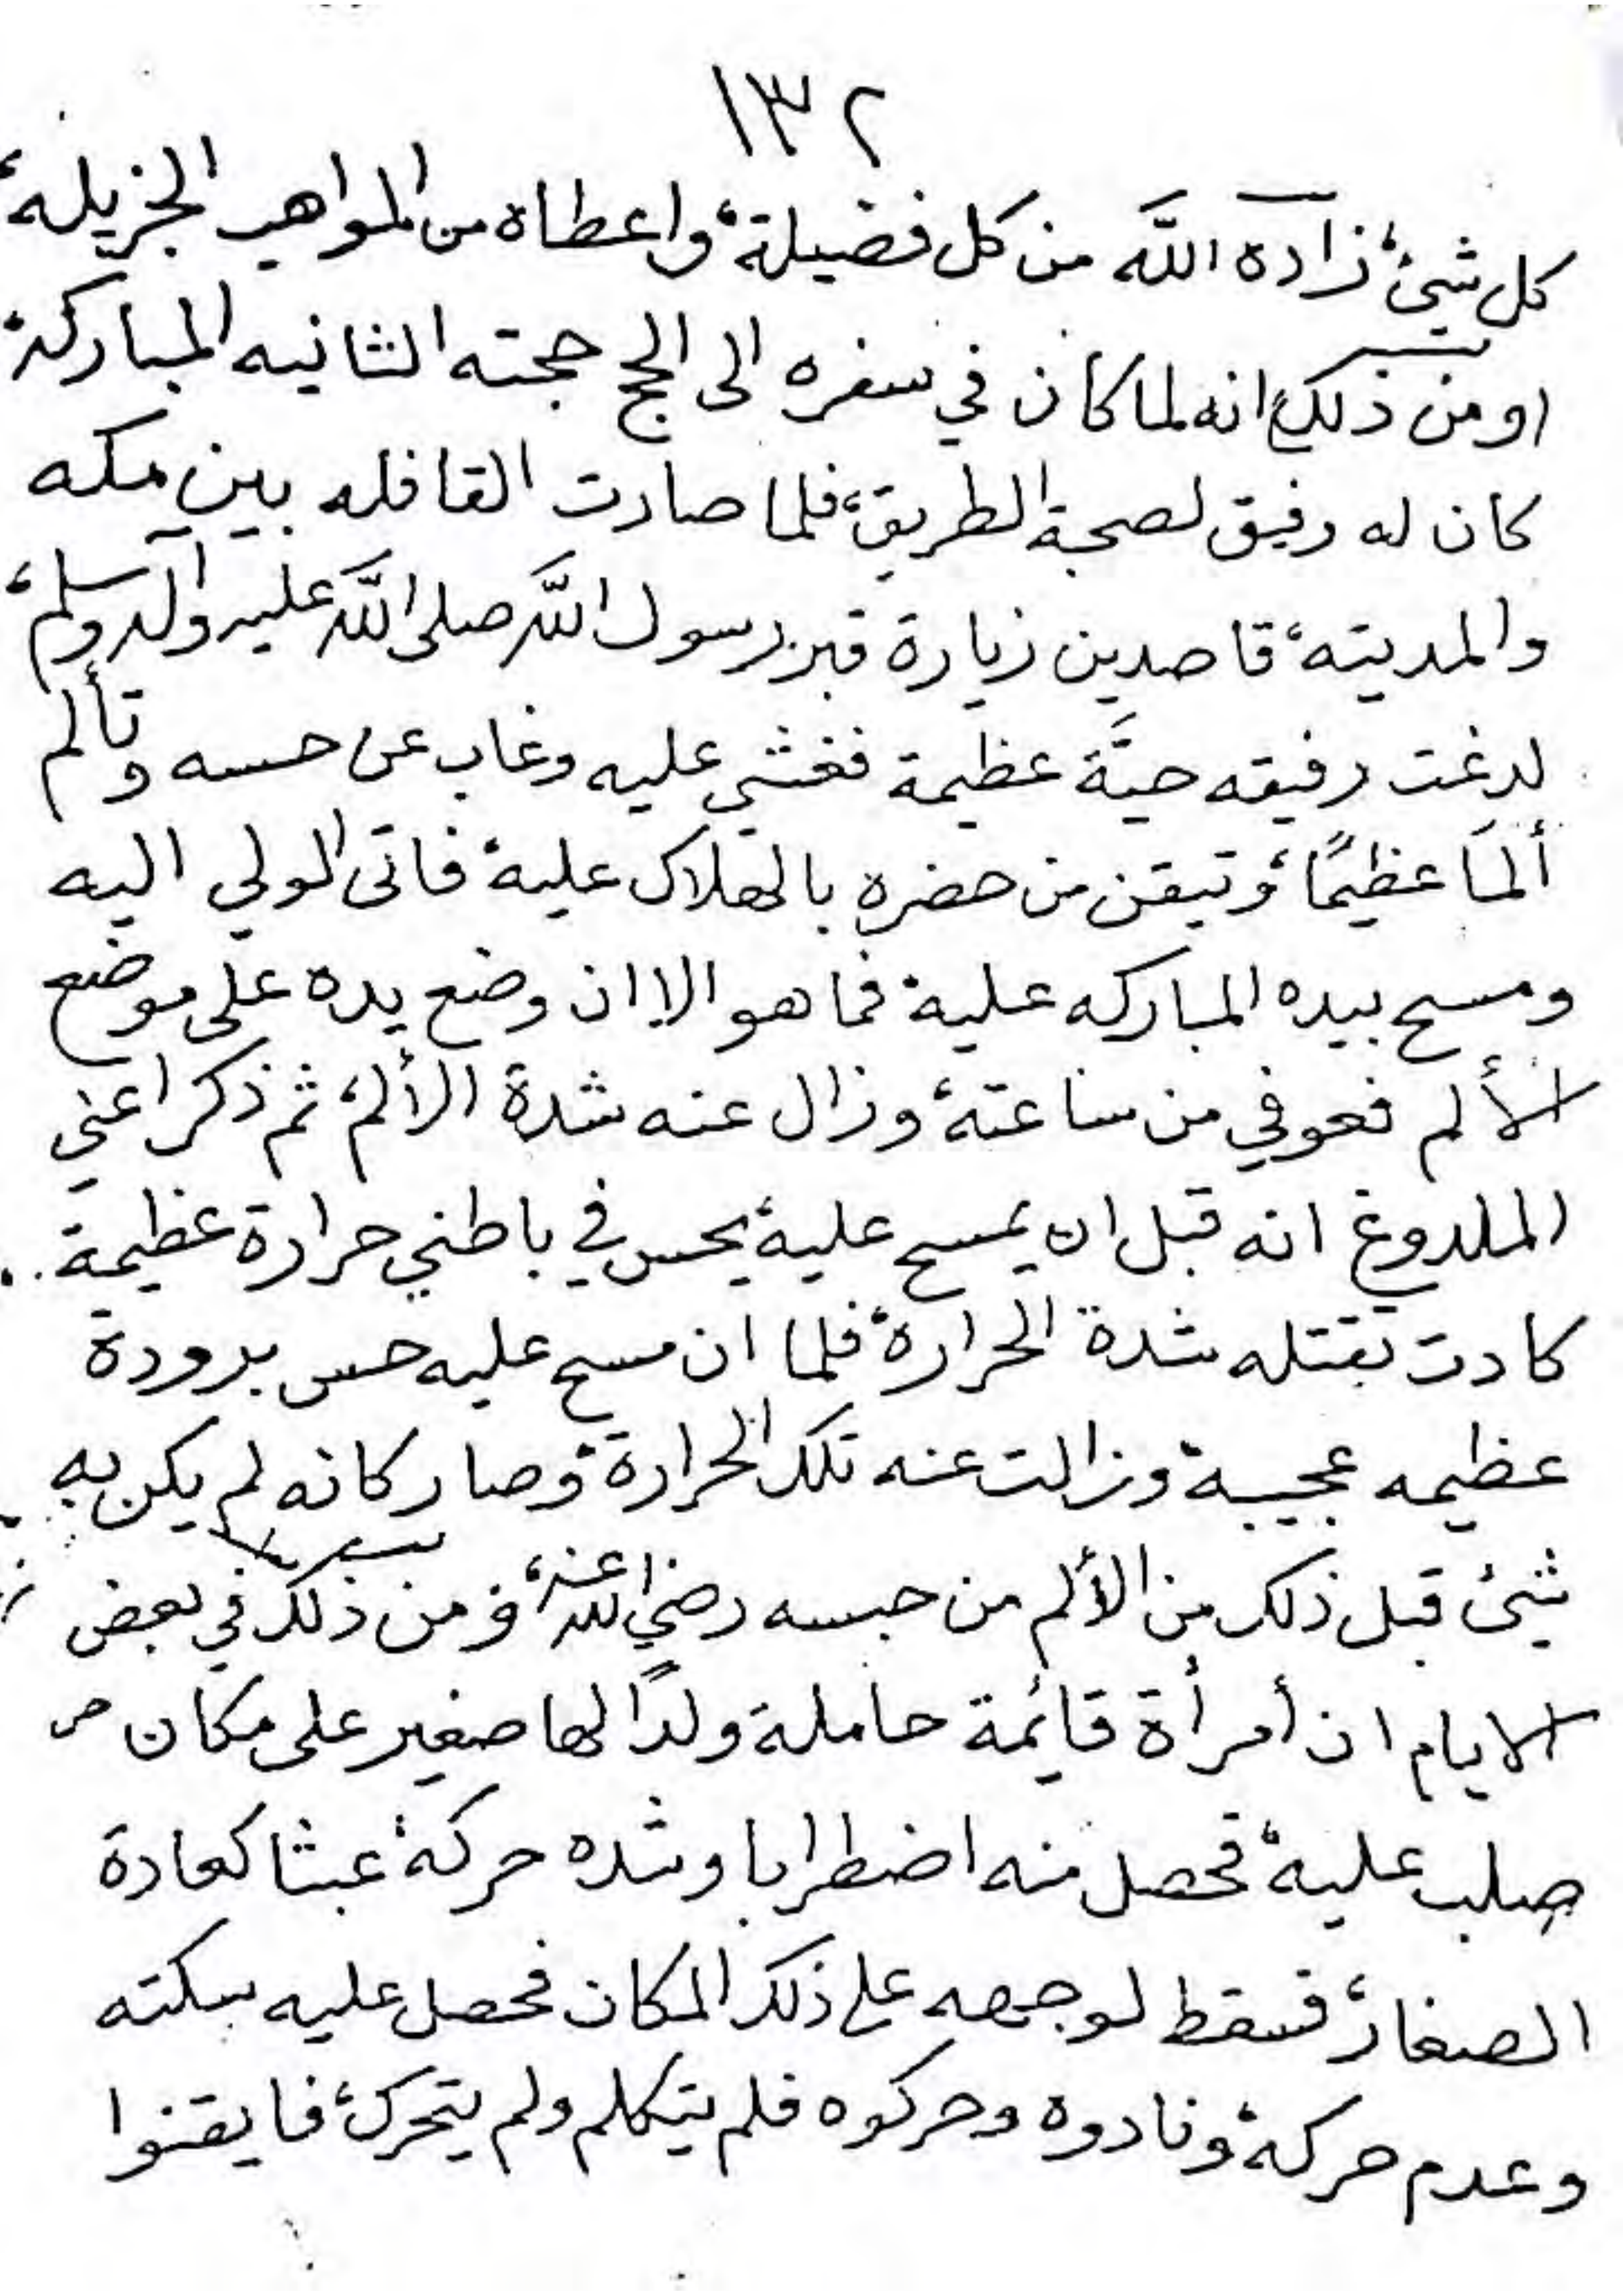 ١٣٢
كل شئ، زاده الله من كل فضيلة، واعطاه من المواهب الجزيله،
ومن ذلك انه لما كان في سفره الى الحج حجته الثانيه المباركة،
كان له رفيق لصحبة الطريق، فلما صارت القافله بين مكه
والمدينه، قاصدين زيارة قبر رسول الله صلى الله عليه واله وسلم،
لدغت رفيقه حيَّة عظيمة فغشي عليه وغاب عن حسه وتألم
ألمَا عظيمًا، وتيقن من حضره بالهلاك عليه، فاتى المولي اليه
ومسح بيده المباركه عليه، فما هو الا ان وضع يده على موضع
الألم فعوفي من ساعته، وزال عنه شدة الألم، ثم ذكر اعني
الملدوغ انه قبل ان يمسح عليه، يحس في باطني حرارة عظيمة
كادت تقتله شدة الحرارة، فلما ان مسح عليه حس برودة
عظيمه عجيبة وزالت عنه تلك الحرارة، وصار كانه لم يكن به
شئ قبل ذلك من الألم من حبسه رضي الله عنه، ومن ذلك في بعض
الايام ان أمرأة قائمة حاملة ولدًا لها صغير على مكان
صلب عليه، فحصل منه اضطرابا وشده حركة، عبثا كعادة
الصغار، فسقط لوجهه على ذلك المكان فحصل عليه سكته
وعدم حركة، ونادوه وحركوه فلم يتكلم ولم يتحرك، فايقنوا